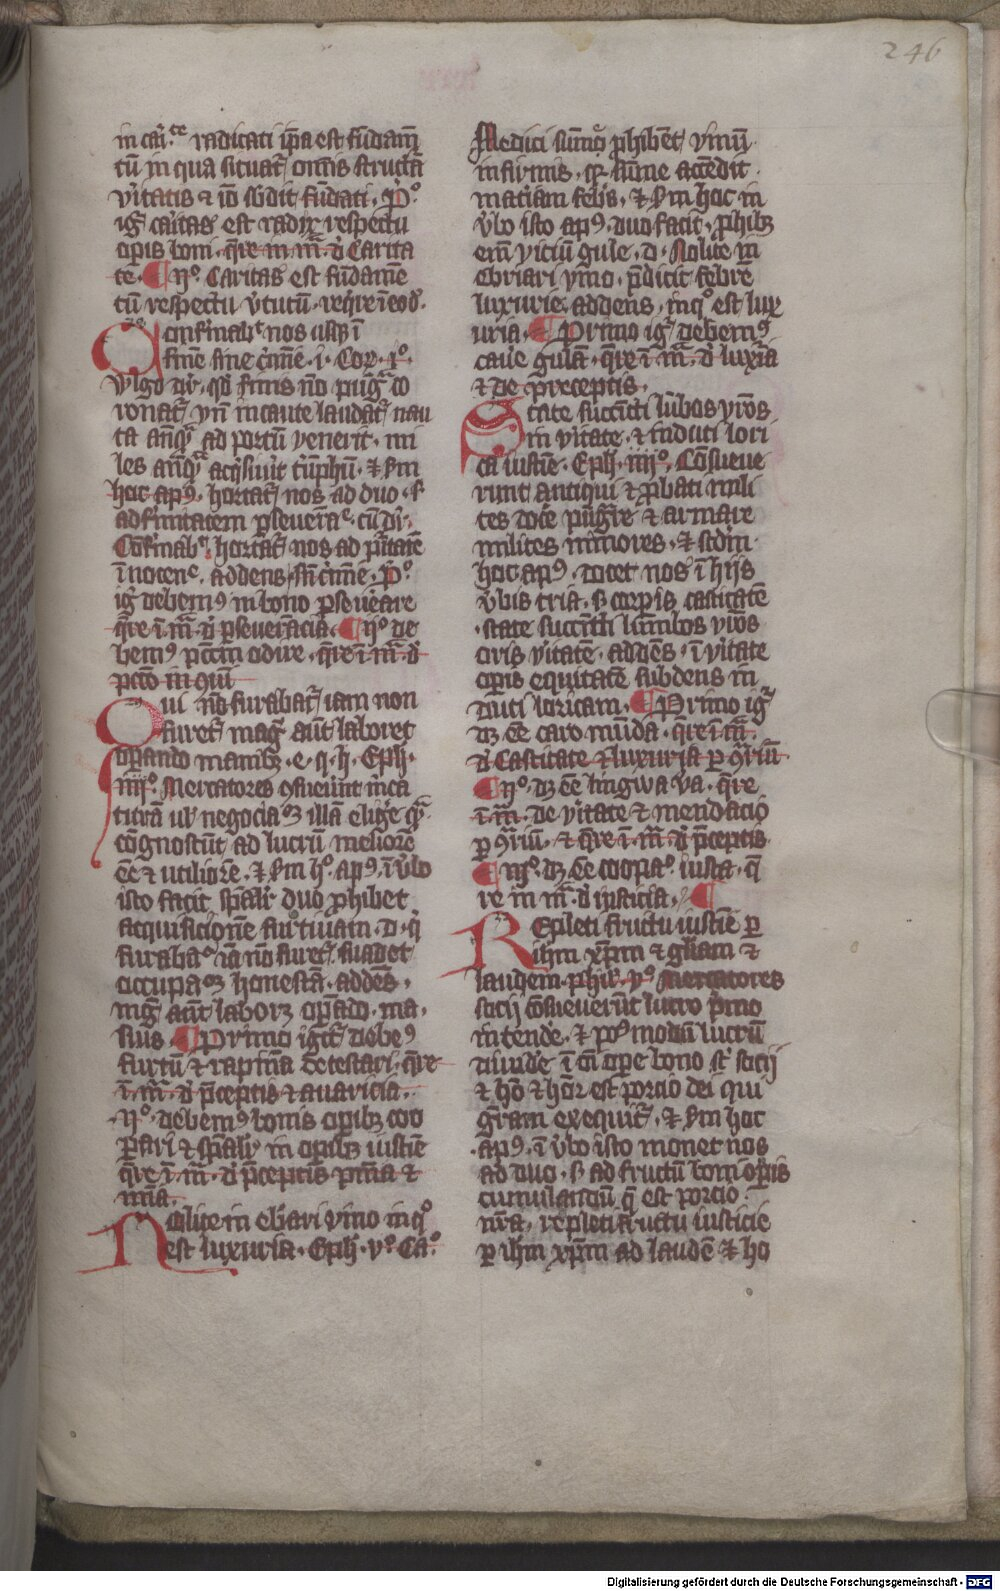 246
in car̄te radicati ip̄a est fūdam̄
tū in qua situat᷑ om̄is structā
v̓itatis ⁊ iō s̄bdit fūdati · p̊
ig̓ car̄itas est radix respectu
op̄is boni · q̄re in m̄ · d̓ Carita
te · ¶ ijº Caritas est fūdamē
tū respectu v̓tutū · req̄re ī eod̓ ·
Confirmab̓t nos usq̄ ī
finē sine c̓mīe · i · Cor · iº ·
Vlgo dr̄ · qd̓ finis nō pug̓ co
ronat᷑ vn̄ incaute laudat᷑ nau
ta anq̄ ad portū venerit · mi
les anq̄ acq̄sivit t̓ūphū · ⁊ s̄m
hoc ap̄9 · hortat᷑ nos ad duo · s̄
ad finitatem p̱seuerāe · cū dr̄ ·
Confirmab̓t hortat᷑ nos ad puritatē
ī nocenc̄ · addens sn̄ c̓mīe · p̊
ig̓ debem9 in bono p̱seuerare
q̄re ī m̄ · d̓ p̱seuerācia · ¶ ijº de
bem9 pcc̄m odire · q̄re ī m̄ · d̓
pccō
Qui nō furabat᷑ iam non
furet᷑ mag̓ aut̄ laboret
operando manibꝫ · e · q · h · Eph̄ ·
iiijº · Mercatores
negocia
cognoscūt ad lucrū meliorē
eē ⁊ utiliorē · ⁊ s̄m hº · ap̄9 · ī v̓bo
isto facit sp̄alr̄ duo prohibet
acquisicionē furtiuam · d · q̓
furabaᵗ iā nō furet᷑ suadet
occupacōꝫ honestā · addēs ·
mag̓ aut̄ laborꝫ op̄ādo · ma ·
nibus · ¶ Primo igit᷑ debeᵐ9
furtū ⁊ rapinā detestari · q̄re
ī m̄ · d̓ p̄ceptis ⁊ auaricia ·
ijº · debem9 bonis opibꝫ coo
perari ⁊ sp̄alr̄ in opibꝫ iusticē
q̄re ī m̄ · d̓ p̄ceptis
Nolite in ebriari vino in qº
est luxuria · Eph̄ · vº · Caº
Medici sum̄o prohibēt vinū
infirmis · qꝛ sum̄e accedit
matiam febris · ⁊ s̄m hoc in
v̓bo isto ap̄9 · duo facit · prohibꝫ
enī viciū gule · d · Nolite in
ebriari vino · p̄dicit febrē
luxurie · addens · in qº est lux
uria · ¶ Primo ig̓ debem9
cauē gulā · q̄re ī m̄ · d̓ luxīa
⁊ de preceptis ·
State succincti lūbos vr̄os
in vitate · ⁊ induti lori
ca iusticē · Eph̄ · iiijº · Consueue
runt antiqui ⁊ p̱bati mili
tes docē pug̓re ⁊ armare
milites minores · ⁊ scdm̄
hoc ap̄9 · docet nos ī hijs
v̓bis tria · s̄ corp̱is castitatē
· state succincti lumbos vr̄os
oris vitatē · addēs · ī v̓itate
op̱is equitatē subdens in
duti loricam · ¶ Primo ig̓
dꝫ eē caro mūda · q̄re ī m̄ ·
d̓ Castitate ⁊ luxuria p̱ ꝯriū
¶ ijº · dꝫ eē lingwa va · q̄re
ī m̄ · de v̓itate ⁊ mendacio
p̱ ꝯriū · ⁊ q̄re ī m̄ · d̓ p̄ceptis
¶ iijº · dꝫ eē coop̱aᵒ iusta · q̄
re in m̄ · d̓ iusticia · ¶
Repleti fructu iusticē p̱
ihm xp̄m ⁊ gl̄iam ⁊
laudem · phil̄ · pº · Mercatores
socij consueuerūt lucro p̄mo
intendē · ⁊ pº9 modū lucrū
diuidē ī om̄i ope bono sт̄ socij
⁊ hō ⁊ honor est porcio dei qui
gr̄am exequit᷑ · ⁊ s̄m hoc
· ap̄9 · ī v̓bo isto monet nos
ad duo · s̄ ad fructū boni op̱is
cumulandū q̄ est porcio ·
nr̄a · repleti fructu iusticie
p̱ ihm xp̄m ad laudē ⁊ ho
Digitalisierung gefördert durch die Deutsche Forschungsgemeinschaft - DFG